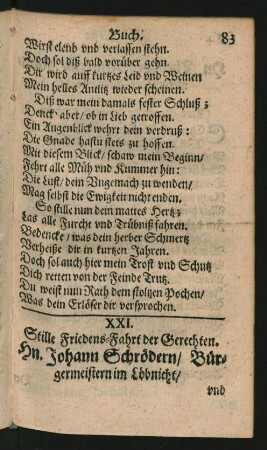 Buch. 83
Wirst elend vnd verlassen stehn.
Doch sol diß bald vorüber gehn
Dir wird auff kurtzes Leid vnd Weinen
Mein helles Antlitz wieder scheinen.
Diß war mein damals fester Schluß;
Denck aber/ ob in Lieb getroffen.
Ein Augenblick wehrt dein verdruß:
Die Gnade hastu stets zu hoffen.
Mit diesem Blick/ schaw mein Beginn/
Fehrt alle Müh vnd Kummer hin:
Die Lust/ dein Vngemach zu wenden/
Mag selbst die Ewigkeit nicht enden.
So stille nun dein mattes Hertz;
Las alle Furcht vnd Trübniß fahren.
Bedencke/ was dein herber Schmertz
Verheiße dir in kurtzen Jahren.
Doch sol auch hier mein Trost vnd Schutz
Dich retten von der Feinde Trutz.
Du weist nun Rath dem stoltzen Pochen/
Was dein Erlöser dir versprochen.
XXI.
Stille Friedens-Fahrt der Gerechten.
Hn. Johann Schrödern/ Bür-
germeistern im Löbnicht/
vnd